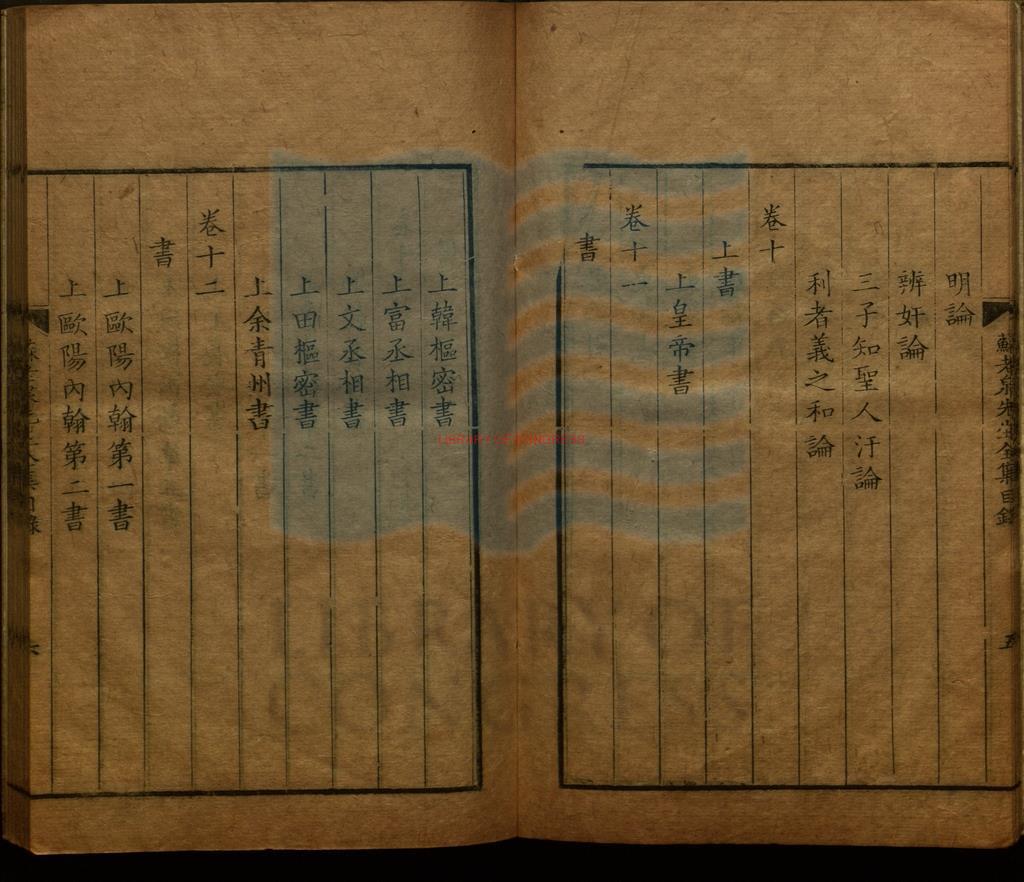 蘇老泉先生全集目錄
五
明論
辨奸論
三子知聖人汙論
利者義之和論
卷十
上書
上皇帝書
卷十一
書
上韓樞密書
上富丞相書
上文丞相書
上田樞密書
上余青州書
卷十二
書
上歐陽內翰第一書
上歐陽內翰第二書
六
LIBRARY OF CONGRESS